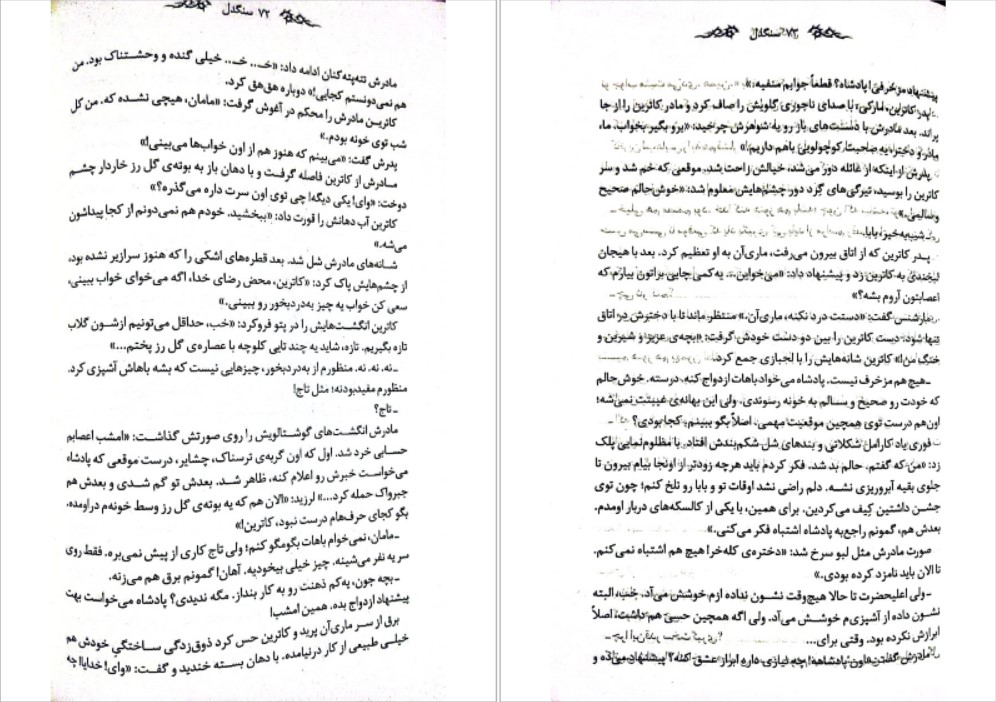 ۷۲ سنگدل
مادرش تته‌پته‌کنان ادامه داد: «خـ... خـ... خیلی گنده و وحشتناک بود. من
هم نمی‌دونستم کجایی!» دوباره هق‌هق کرد.
کاترین مادرش را محکم در آغوش گرفت: «مامان، هیچی نشده که. من کل
شب توی خونه بودم.»
پدرش گفت: «می‌بینم که هنوز هم از اون خواب‌ها می‌بینی!»
مادرش از کاترین فاصله گرفت و با دهان باز به بوته‌ی گل رز خاردار چشم
دوخت: «وای! یکی دیگه! چی توی اون سرت داره می‌گذره؟»
کاترین آب دهانش را قورت داد: «ببخشید. خودم هم نمی‌دونم از کجا پیداشون
می‌شه.»
شانه‌های مادرش شل شد. بعد قطره‌های اشکی را که هنوز سرازیر نشده بود،
از چشم‌هایش پاک کرد: «کاترین، محض رضای خدا، اگه می‌خوای خواب ببینی،
سعی کن خواب یه چیز به‌دردبخور رو ببینی.»
کاترین انگشت‌هایش را در پتو فروکرد: «خب، حداقل می‌تونیم ازشون گلاب
تازه بگیریم. تازه، شاید یه چند تایی کلوچه با عصاره‌ی گل رز پختم...»
ـ نه. نه. نه. منظورم از به‌دردبخور، چیزهایی نیست که بشه باهاش آشپزی کرد.
منظورم مفیدبودنه؛ مثل تاج!
ـ تاج؟
مادرش انگشت‌های گوشتالویش را روی صورتش گذاشت: «امشب اعصابم
حسابی خرد شد. اول که اون گربه‌ی ترسناک، چشایر، درست موقعی که پادشاه
می‌خواست خبرش رو اعلام کنه، ظاهر شد. بعدش تو گم شدی و بعدش هم
جبرواک حمله کرد...» لرزید: «الان هم که یه بوته‌ی گل رز وسط خونه‌م دراومده.
بگو کجای حرف‌هام درست نبود، کاترین!»
ـ مامان، نمی‌خوام باهات بگومگو کنم؛ ولی تاج کاری از پیش نمی‌بره. فقط روی
سر یه نفر می‌شینه. چیز خیلی بیخودیه. آهان! گمونم برق هم می‌زنه.
ـ بچه جون، یه‌کم ذهنت رو به کار بنداز. مگه ندیدی؟ پادشاه می‌خواست بهت
پیشنهاد ازدواج بده. همین امشب!
برق از سر ماری‌آن پرید و کاترین حس کرد ذوق‌زدگی ساختگیِ خودش هم
خیلی طبیعی از کار درنیامده. با دهان بسته خندید و گفت: «وای! خدایا! چه
۷۳ سنگدل
پیشنهاد مزخرفی! پادشاه؟ قطعاً جوابم منفیه.»
پدر کاترین، مارکی، با صدای ناجوری گلویش را صاف کرد و مادر کاترین را از جا
پراند. بعد مادرش با دست‌های باز رو به شوهرش چرخید: «برو بگیر بخواب. ما،
مادر و دختر، یه صحبت کوچولویی باهم داریم.»
پدرش از اینکه از غائله دور می‌شد، خیالش راحت شد. موقعی که خم شد و سر
کاترین را بوسید، تیرگی‌های گِرد دور چشم‌هایش معلوم شد: «خوش‌حالم صحیح
و سالمی.»
ـ شب به‌خیر، بابا.
پدر کاترین که از اتاق بیرون می‌رفت، ماری‌آن به او تعظیم کرد. بعد با هیجان
لبخندی به کاترین زد و پیشنهاد داد: «می‌خواین... یه‌کمی چایی براتون بیارم که
اعصابتون آروم بشه؟»
مارشنس گفت: «دستت درد نکنه، ماری‌آن.» منتظر ماند تا با دخترش در اتاق
تنها شود؛ دست کاترین را بین دو دست خودش گرفت: «بچه‌ی عزیز و شیرین و
خنگ من!» کاترین شانه‌هایش را با لجبازی جمع کرد.
ـ هیچ هم مزخرف نیست. پادشاه می‌خواد باهات ازدواج کنه. درسته. خوش‌حالم
که خودت رو صحیح و سالم به خونه رسوندی. ولی این بهانه‌ی غیبتت نمی‌شه؛
اون هم درست توی همچین موقعیت مهمی. اصلاً بگو ببینم، کجا بودی؟
فوری یاد کارامل شکلاتی و بندهای شل شکم‌بندش افتاد. با مظلوم‌نمایی پلک
زد: «من که گفتم. حالم بد شد. فکر کردم باید هرچه زودتر از اونجا بیام بیرون تا
جلوی بقیه آبروریزی نشه. دلم راضی نشد اوقات تو و بابا رو تلخ کنم؛ چون توی
جشن داشتین کیف می‌کردین. برای همین، با یکی از کالسکه‌های دربار اومدم.
بعدش هم، گمونم راجع‌به پادشاه اشتباه فکر می‌کنی.»
صورت مادرش مثل لبو سرخ شد: «دختره‌ی کله‌خر! هیچ هم اشتباه نمی‌کنم.
تا الان باید نامزد کرده بودی.»
ـ ولی اعلیحضرت تا حالا هیچ‌وقت نشون نداده ازم خوشش می‌آد. خب، البته
نشون داده از آشپزی‌م خوشش می‌آد. ولی اگه همچین حسی هم داشت، اصلاً
ابرازش نکرده بود. وقتی برای...
مادرش گفت: «اون پادشاهه! چه نیازی داره ابراز عشق کنه؟ پیشنهاد می‌ده و